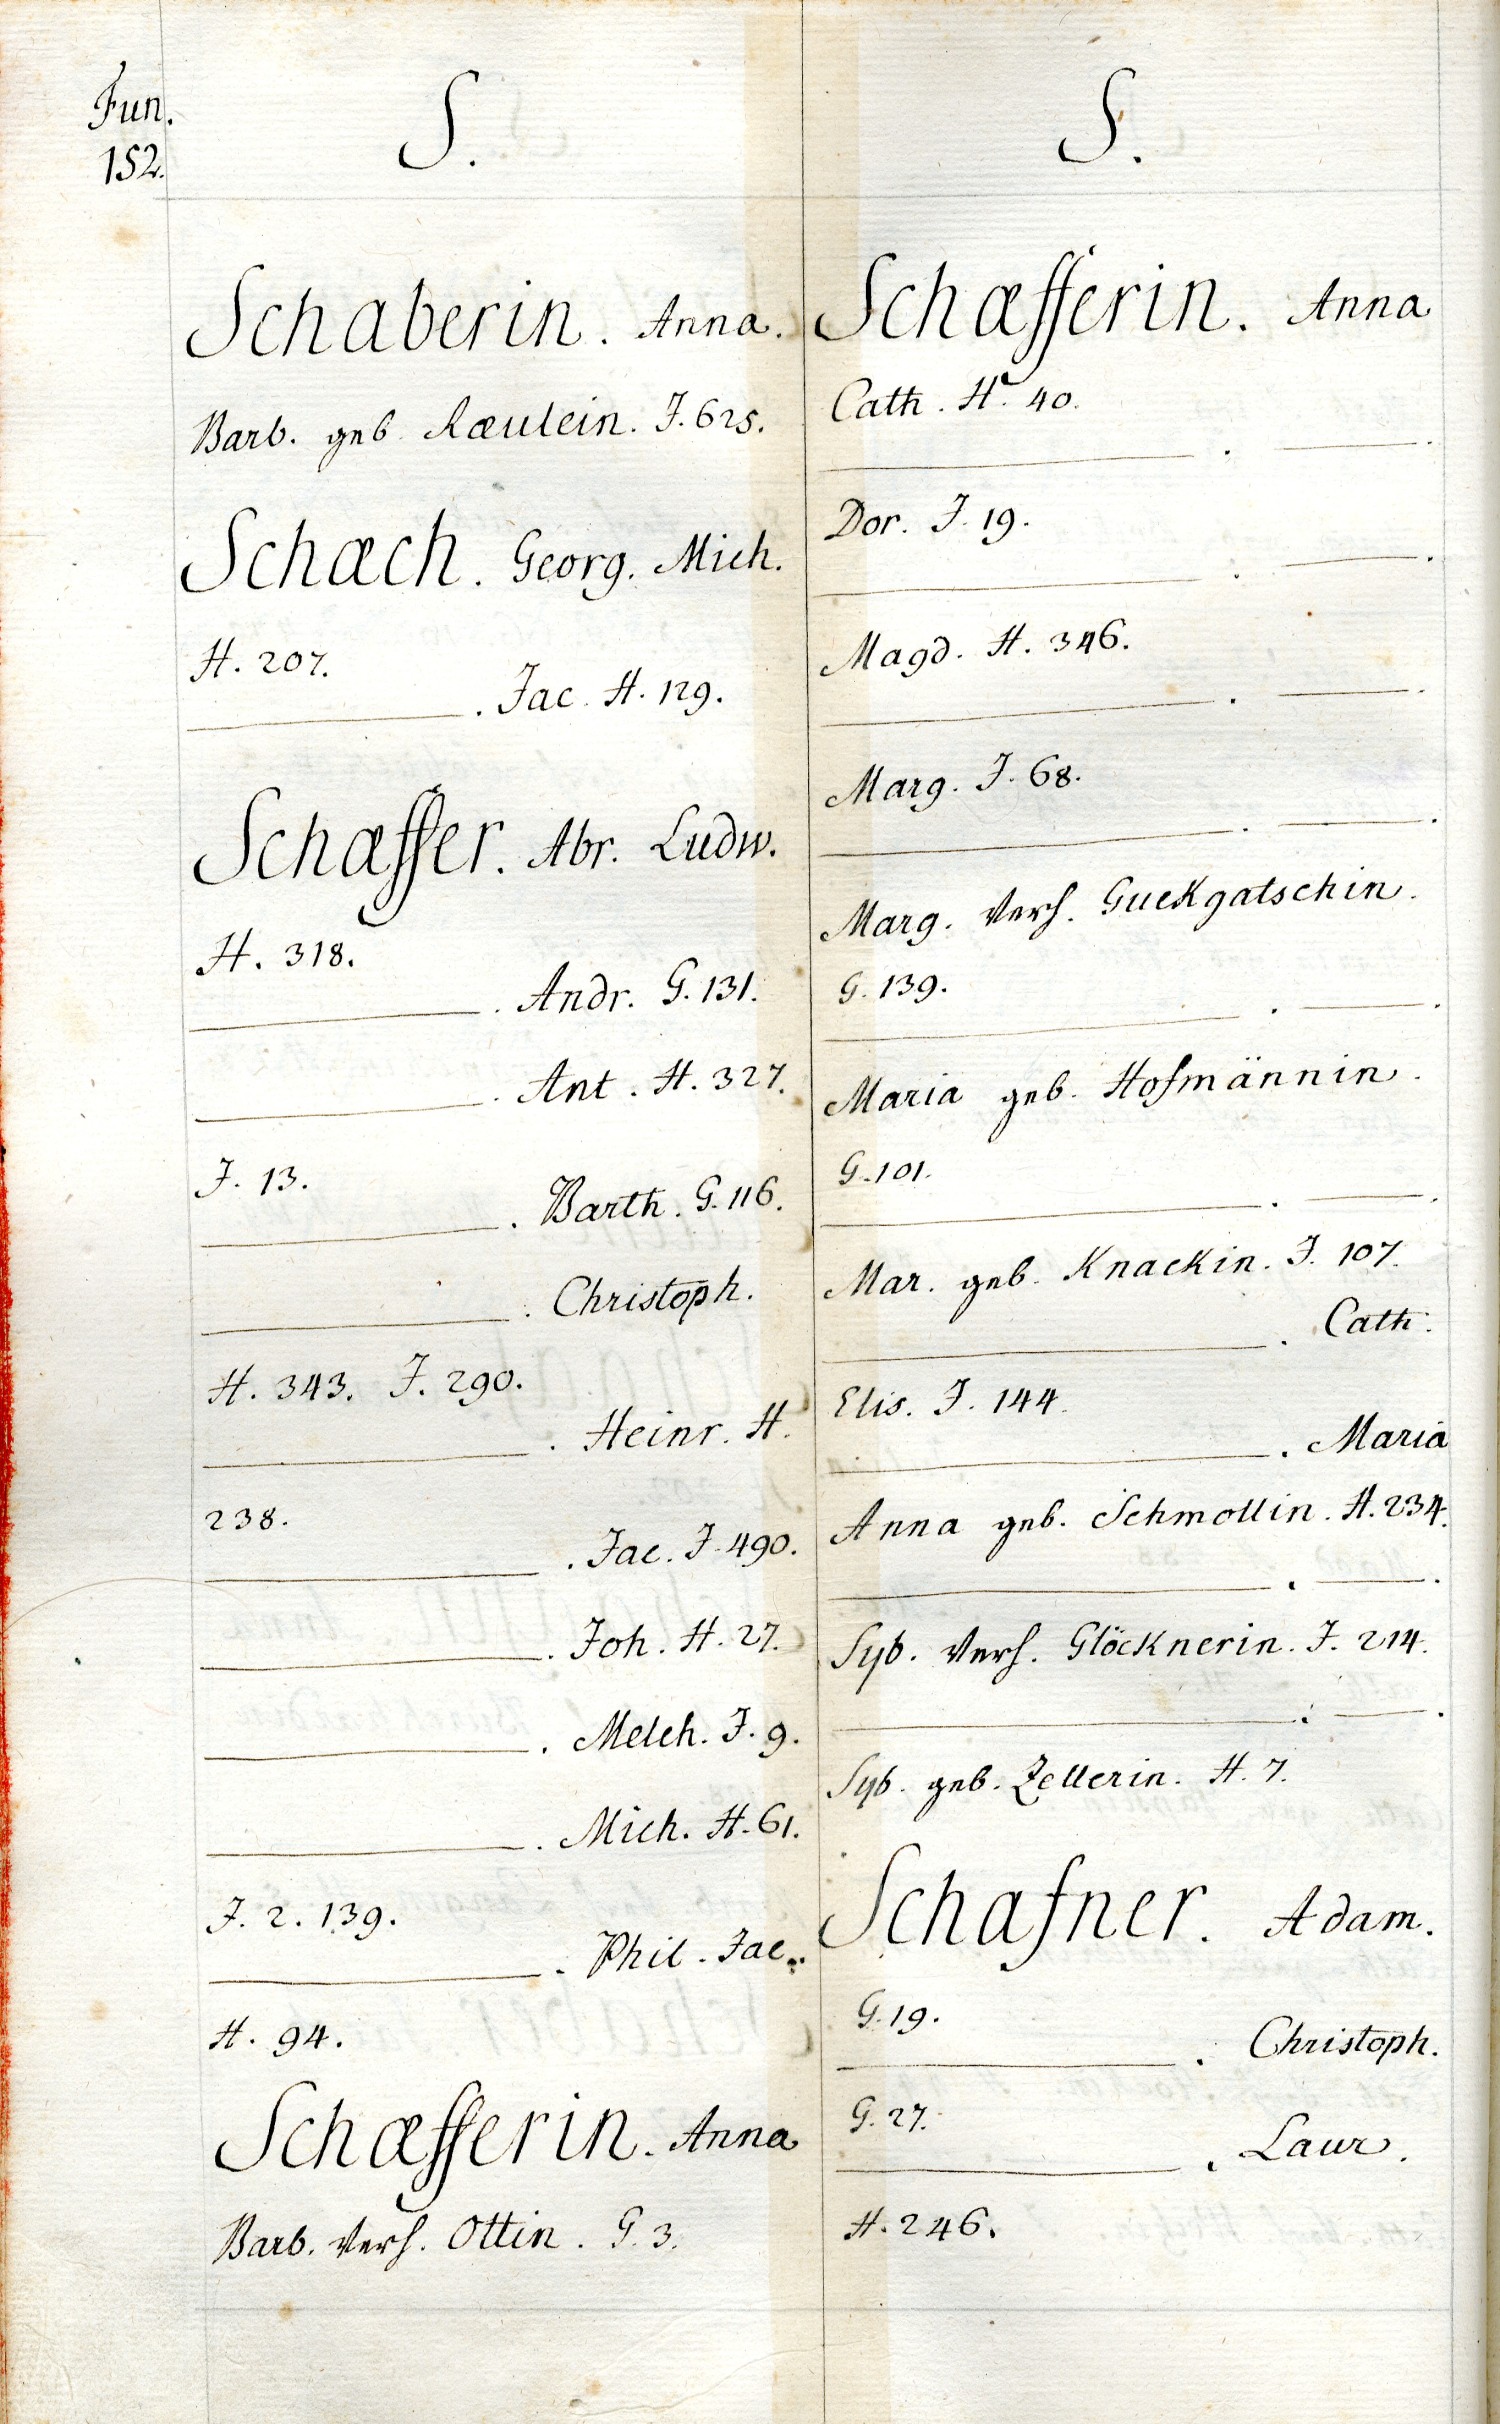 Fun.
152.
S.
Schaberin. Anna.
Barb. geb. Räulein. J. 625.
Schæch. Georg. Mich.
H. 207.
———. Jac. H. 129.
Schæffer. Abr. Ludw.
H. 318.
———. Andr. G. 131.
———. Ant. H. 327.
J. 13.
———. Barth. G. 116.
———. Christoph.
H. 343. J. 290.
———. Heinr. H.
238.
———. Jac. J. 490.
———. Joh. H. 27.
———. Melch. J. 9.
———. Mich. H. 61.
J. 2. 139.
———. Phil. Jac.
H. 94.
Schæfferin. Anna
Barb. Verh. Ottin. G. 3.
S.
Schæfferin. Anna
Cath. H. 40.
———. ———.
Dor. J. 19.
———. ———.
Magd. H. 346.
———. ———.
Marg. J. 68.
———. ———.
Marg. Verh. Guckgatschin.
G. 139.
———. ———.
Maria geb. Hofmännin.
G. 101.
———. ———.
Mar. geb. Knackin. J. 107.
———. Cath.
Elis. J. 144.
———. Maria
Anna geb. Schmollin. H. 234.
———. ———.
Syb. Verh. Glöcknerin. J. 214.
———. ———.
Syb. geb. Zellerin. H. 7.
Schafner. Adam.
G. 19.
———. Christoph.
G. 27.
———. Laur.
H. 246.